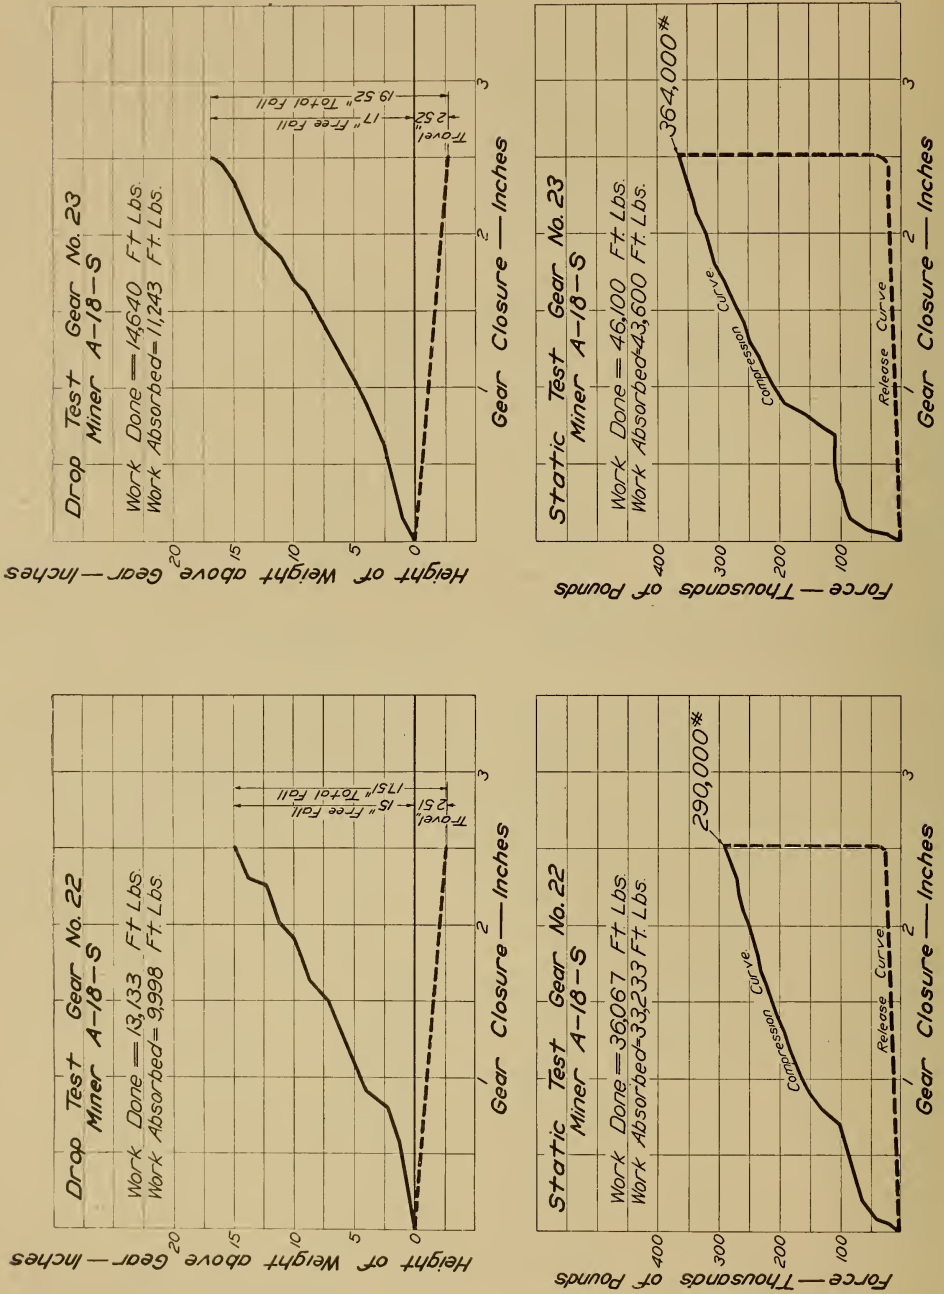 Drop Test Gear No. 22
Miner A-18-S
Work Done = 13,133 Ft Lbs.
Work Absorbed = 9,998 Ft Lbs.
Height of Weight above Gear—Inches
20
15
10
5
0
15" Free Fall
17.51" Total Fall
2.51"
Travel
1
2
3
Gear Closure—Inches
Drop Test Gear No. 23
Miner A-18-S
Work Done = 14,640 Ft Lbs.
Work Absorbed = 11,243 Ft. Lbs.
Height of Weight above Gear—Inches
20
15
10
5
0
17" Free Fall
19.52" Total Fall
2.52"
Travel
1
2
3
Gear Closure—Inches
Static Test Gear No. 22
Miner A-18-S
Work Done = 36,067 Ft Lbs.
Work Absorbed=33,233 Ft. Lbs.
290,000#
Force—Thousands of Pounds
400
300
200
100
Compression Curve
Release Curve
1
2
3
Gear Closure—Inches
Static Test Gear No. 23
Miner A-18-S
Work Done = 46,100 Ft. Lbs.
Work Absorbed=43,600 Ft. Lbs.
364,000#
Force—Thousands of Pounds
400
300
200
100
Compression Curve
Release Curve
1
2
3
Gear Closure—Inches